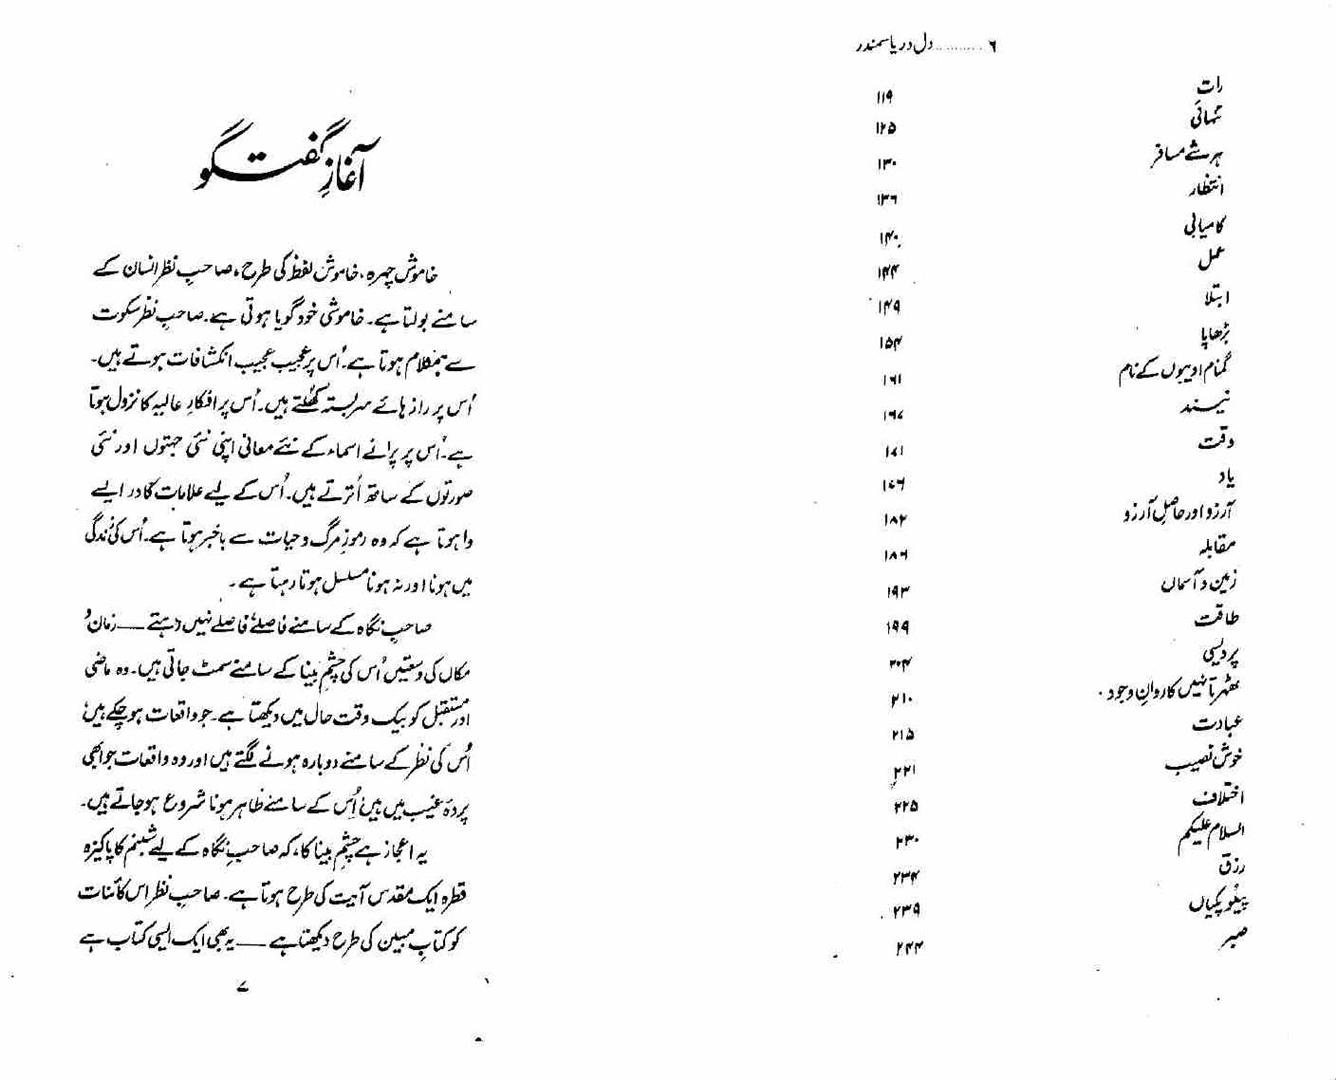 ٦ .......... دل دریا سمندر
رات ۱۱۹
تنہائی ۱۲۵
ہر شے مسافر ۱۳۰
انتظار ۱۳۶
کامیابی ۱۴۰
عمل ۱۴۴
ابتلا ۱۴۹
بڑھاپا ۱۵۴
گمنام ادیبوں کے نام ۱۶۱
نیند ۱۶۷
وقت ۱۷۱
یاد ۱۷۶
آرزو اور حاصلِ آرزو ۱۸۲
مقابلہ ۱۸۶
زمین و آسماں ۱۹۳
طاقت ۱۹۹
پردیسی ۲۰۴
ٹھہرتا نہیں کاروانِ وجود ۲۱۰
عبادت ۲۱۵
خوش نصیب ۲۲۱
اختلاف ۲۲۵
السلام علیکم ۲۳۰
رزق ۲۳۴
پیلُو پکیاں ۲۳۹
صبر ۲۴۴
آغازِ گفتگو
خاموش چہرہ، خاموش لفظ کی طرح، صاحبِ نظر انسان کے
سامنے بولتا ہے۔ خاموشی خود گویا ہوتی ہے۔ صاحبِ نظر سکوت
سے ہمکلام ہوتا ہے۔ اُس پر عجیب عجیب انکشافات ہوتے ہیں۔
اُس پر راز ہائے سربستہ کھُلتے ہیں۔ اُس پر افکارِ عالیہ کا نزول ہوتا
ہے۔ اُس پر پرانے اسماء کے نئے معانی اپنی نئی جہتوں اور نئی
صورتوں کے ساتھ اُترتے ہیں۔ اُس کے لیے علامات کا در ایسے
وا ہوتا ہے کہ وہ رموزِ مرگ و حیات سے باخبر ہوتا ہے۔ اُس کی زندگی
میں ہونا اور نہ ہونا مسلسل ہوتا رہتا ہے۔
صاحبِ نگاہ کے سامنے فاصلے، فاصلے نہیں رہتے ــــ زمان و
مکاں کی وسعتیں اُس کی چشمِ بینا کے سامنے سمٹ جاتی ہیں۔ وہ ماضی
اور مستقبل کو بیک وقت حال میں دیکھتا ہے۔ جو واقعات ہو چکے ہیں،
اُس کی نظر کے سامنے دوبارہ ہونے لگتے ہیں اور وہ واقعات جو ابھی
پردۂ غیب میں ہیں، اُس کے سامنے ظاہر ہونا شروع ہو جاتے ہیں۔
یہ اعجاز ہے چشمِ بینا کا، کہ صاحبِ نگاہ کے لیے شبنم کا پاکیزہ
قطرہ ایک مقدس آیت کی طرح ہوتا ہے۔ صاحبِ نظر اس کائنات
کو کتابِ مبین کی طرح دیکھتا ہے ــــ یہ بھی ایک ایسی کتاب ہے
۷